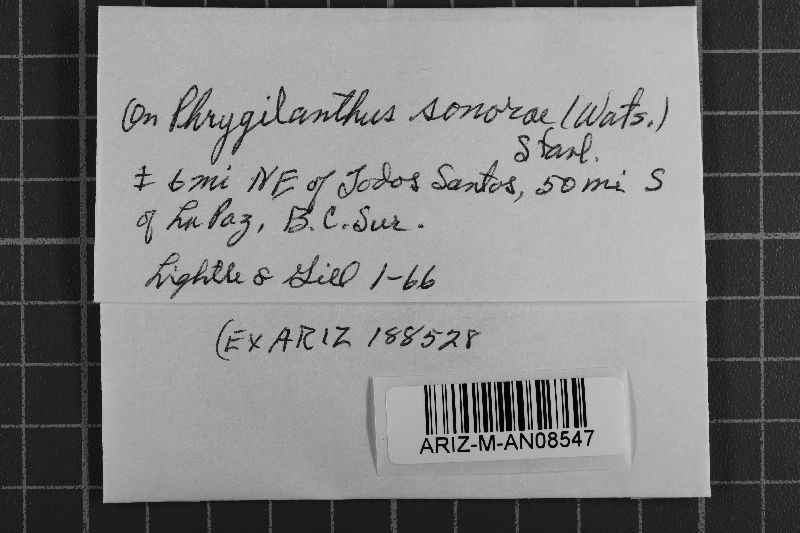 On Phrygilanthus sonorae (Wats.)
Stanl.
± 6 mi NE of Todos Santos, 50 mi S
of La Paz, B.C. Sur.
Lightle & Gill 1-66
(Ex ARIZ 188528
ARIZ-M-AN08547